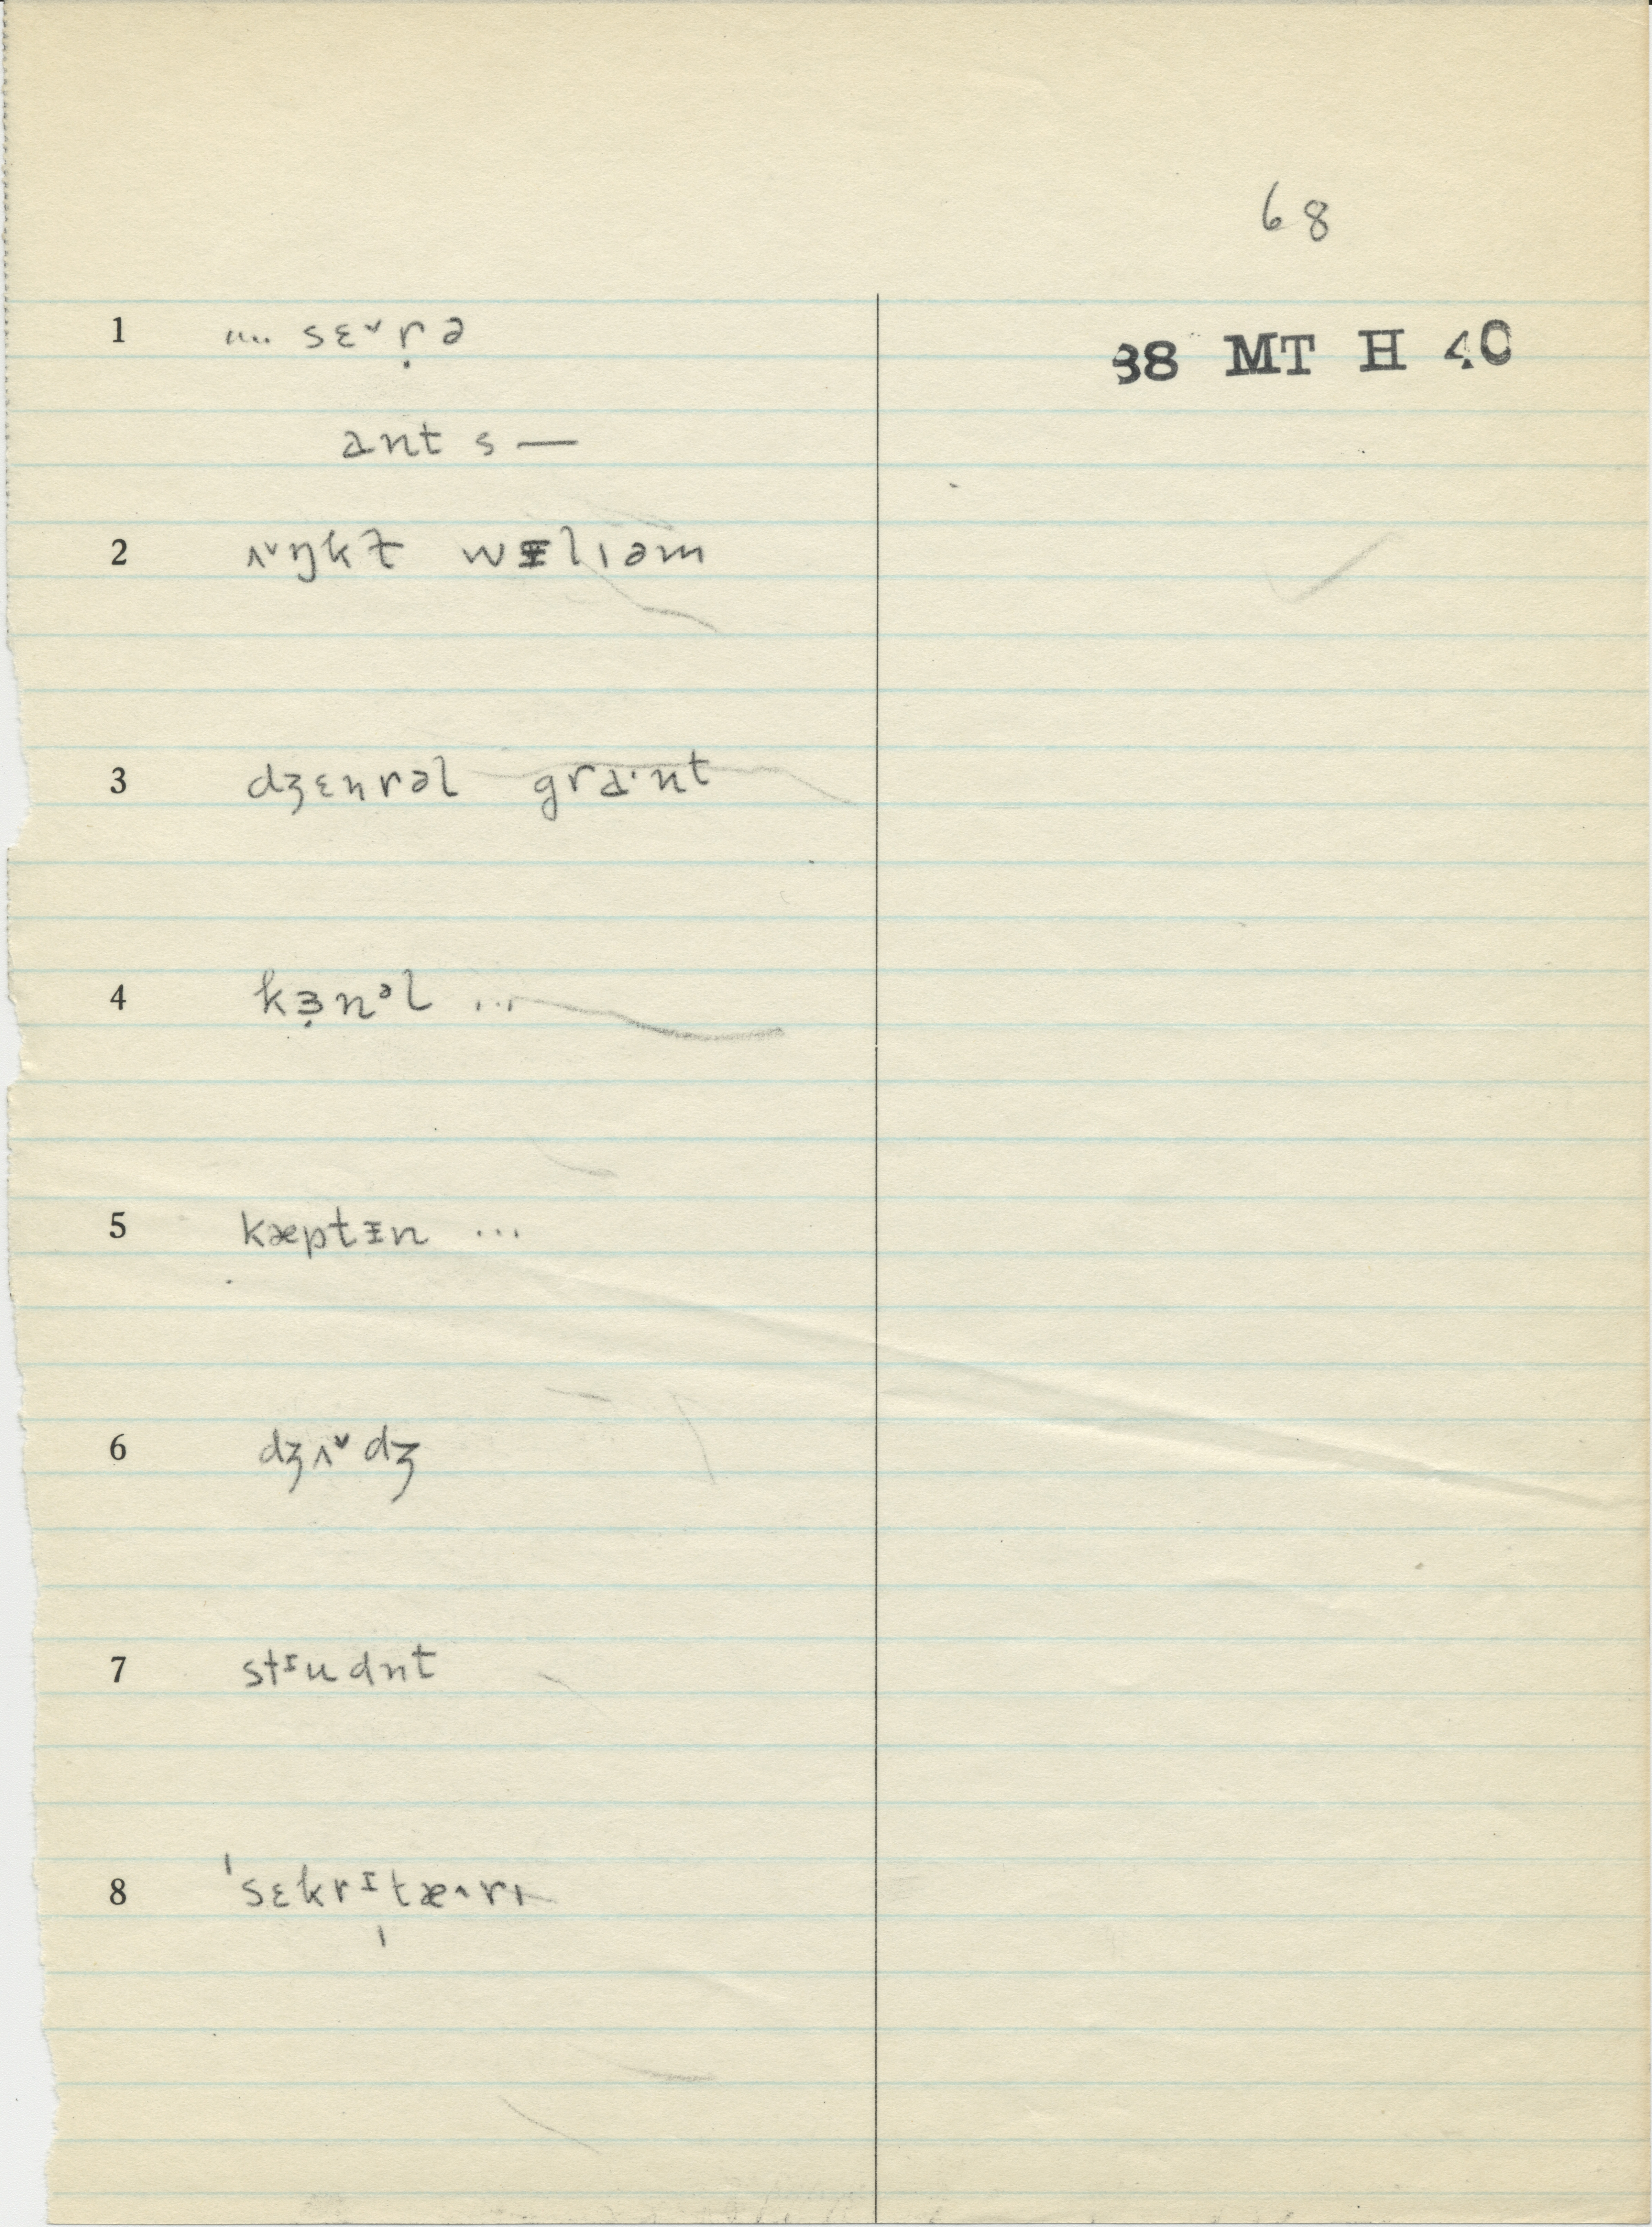 68
38 MT H 40
1 .... sɛˇṛə
ant s —
2 ʌˇŋkɫ wᵻliəm
3 dʒɛnrəl grɑ·nt
4 kɜ̣nᵊl ...
5 kæptᵻn ...
6 dʒʌˇdʒ
7 stᶦudnt
8 ˈsɛkrᶦˌtæ^rɪ